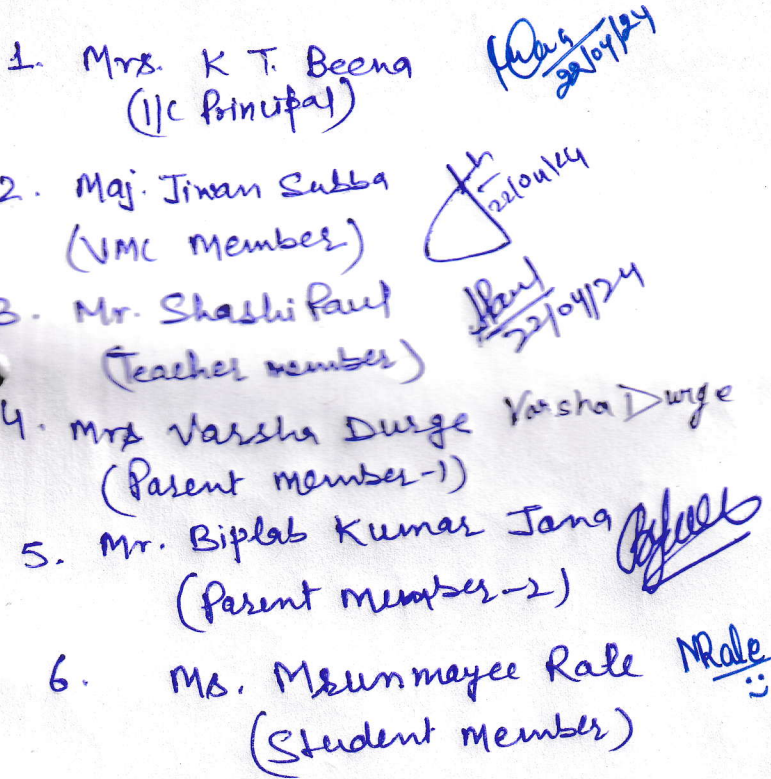 1. Mrs. K T. Beena 22/04/24
(I/C Principal)
2. Maj. Jiwan Subba 22/04/24
(VMC Member)
3. Mr. Shashi Paul SPaul 22/04/24
(Teacher member)
4. Mrs Varsha Durge Varsha Durge
(Parent member-1)
5. Mr. Biplab Kumar Jana
(Parent Member-2)
6. Ms. Mrunmayee Rale MRale
(Student Member)